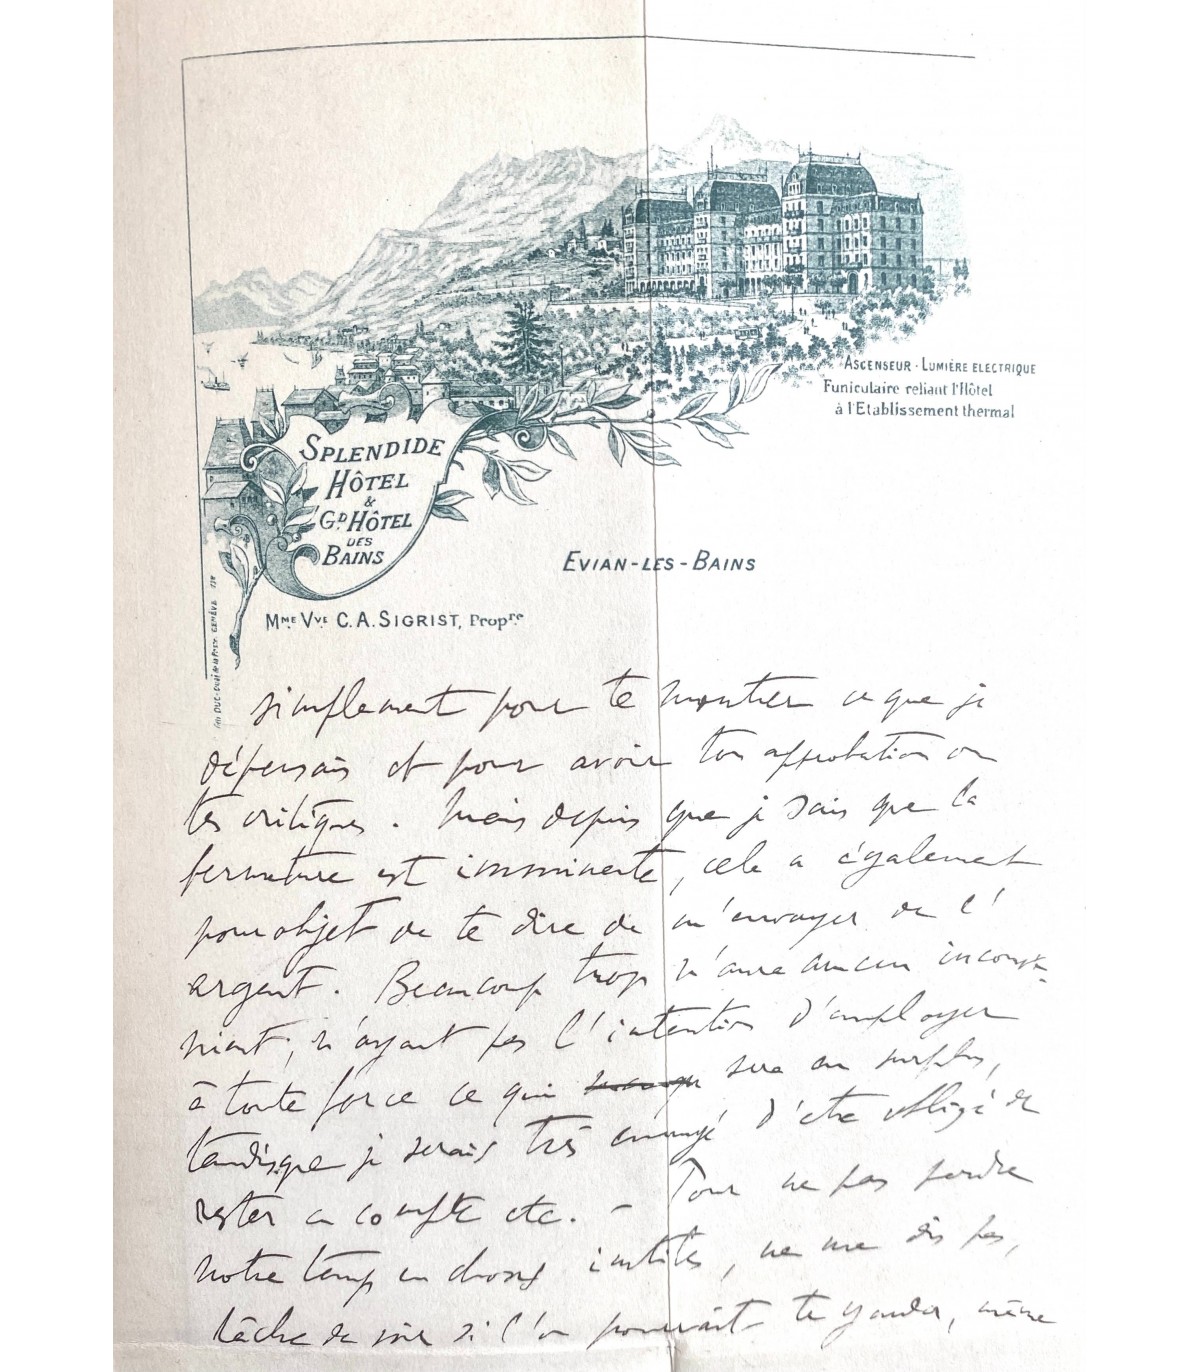 ASCENSEUR - LUMIÈRE ELECTRIQUE
Funiculaire reliant l'Hôtel
à l'Etablissement thermal
SPLENDIDE
HÔTEL
&
GD HÔTEL
DES
BAINS
EVIAN-LES-BAINS
MME VVE C. A. SIGRIST, Propre
simplement pour te montrer ce que je
dépensais et pour avoir ton approbation ou
tes critiques. Mais depuis que je sais que la
fermeture est imminente, cela a également
pour objet de te dire de m'envoyer de l'
argent. Beaucoup trop n'aura aucun inconvé-
nient, n'ayant pas l'intention d'employer
à toute force ce qui sera en surplus,
tandisque je serais très ennuyé d'être obligé de
rester en compte etc. – Pour ne pas perdre
notre temps en choses inutiles, ne me dis pas,
tâche de voir si l'on pourrait te garder, même